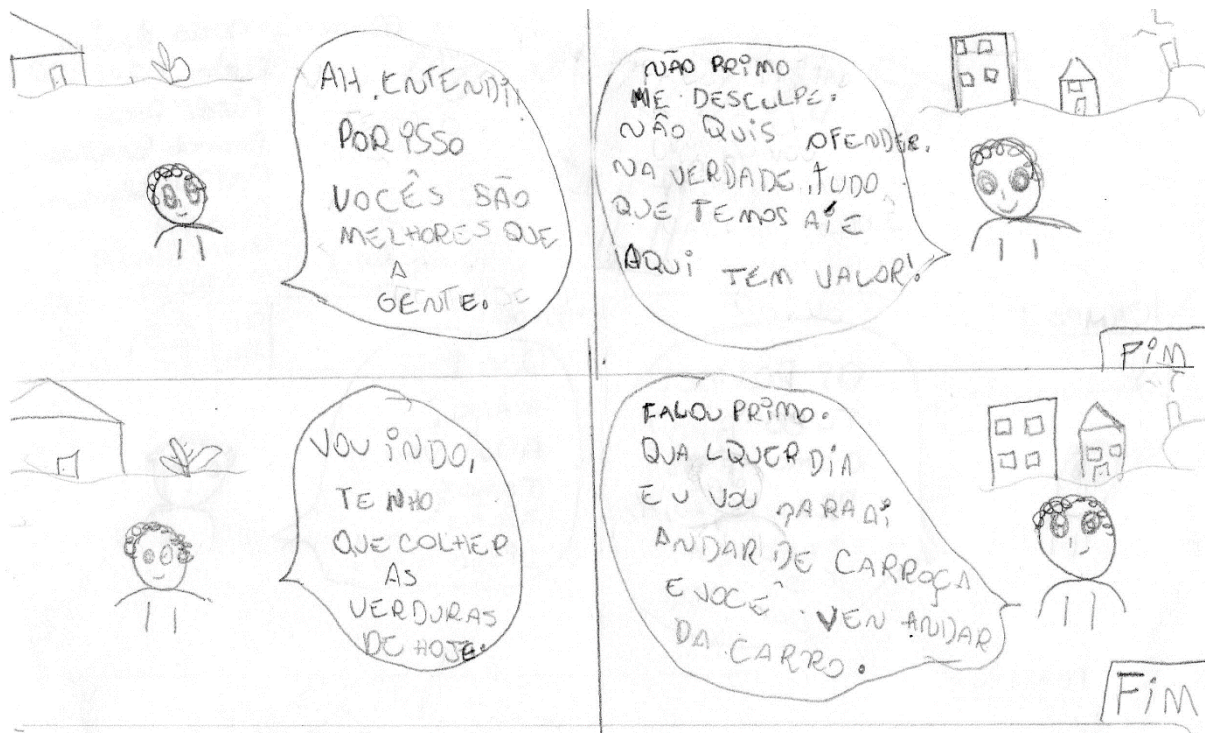 AH, ENTENDI!
POR ISSO
VOCÊS SÃO
MELHORES QUE
A
GENTE.
NÃO PRIMO
ME DESCULPE.
NÃO QUIS OFENDER.
NA VERDADE, TUDO
QUE TEMOS AÍ E
AQUI TEM VALOR!
FIM
VOU INDO,
TENHO
QUE COLHER
AS
VERDURAS
DE HOJE.
FALOU PRIMO.
QUALQUER DIA
EU VOU PARA AÍ
ANDAR DE CARROÇA
E VOCÊ VEN ANDAR
DA CARRO.
FIM